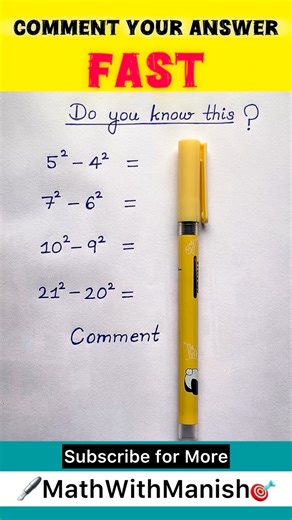 COMMENT YOUR ANSWER
FAST
Do you know this ?
5² - 4² =
7² - 6² =
10² - 9² =
21² - 20² =
Comment
Subscribe for More
MathWithManish